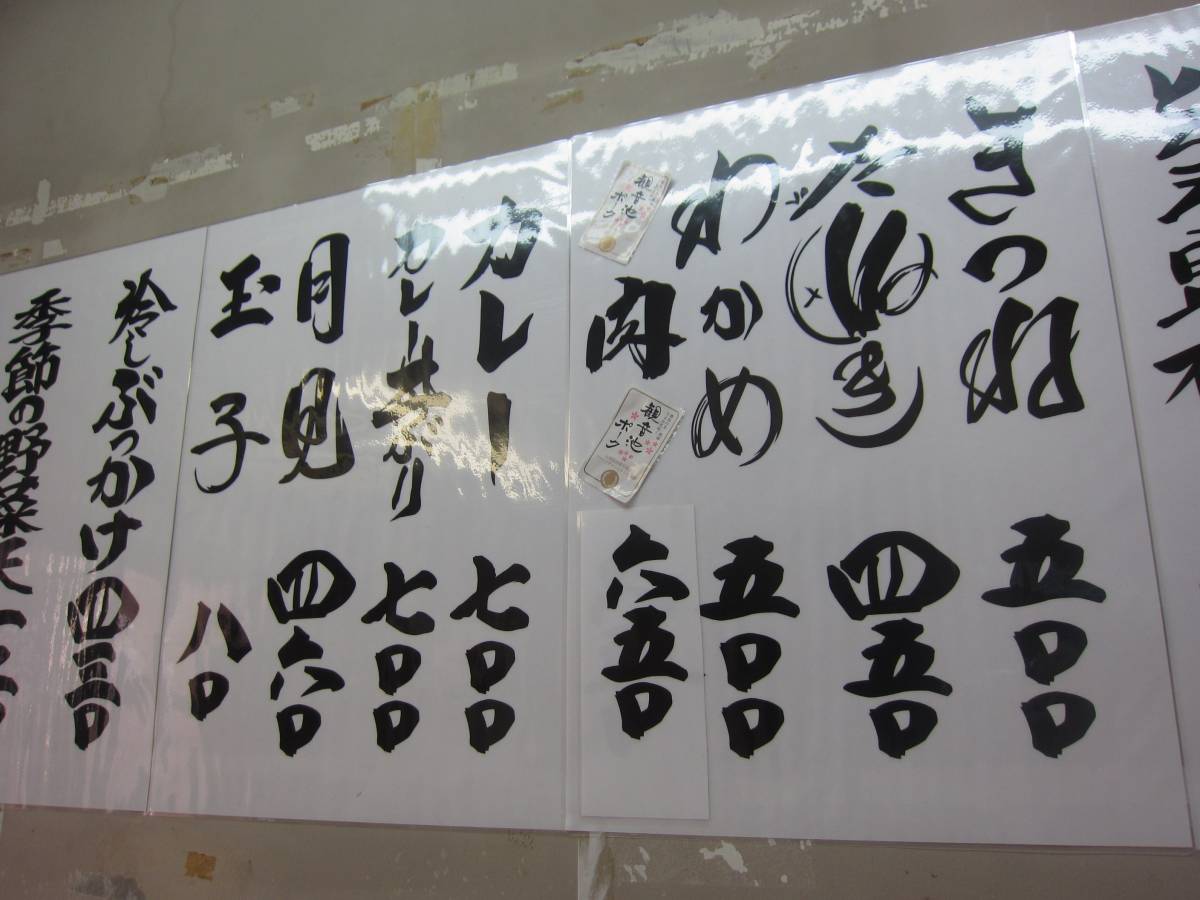 きつね 五〇〇
たぬき 四五〇
わかめ 五〇〇
観音池ポーク
肉 六五〇
観音池ポーク
カレー 七〇〇
七〇〇
月見 四六〇
玉子 八〇
冷しぶっかけ 四三〇
季節の野菜天